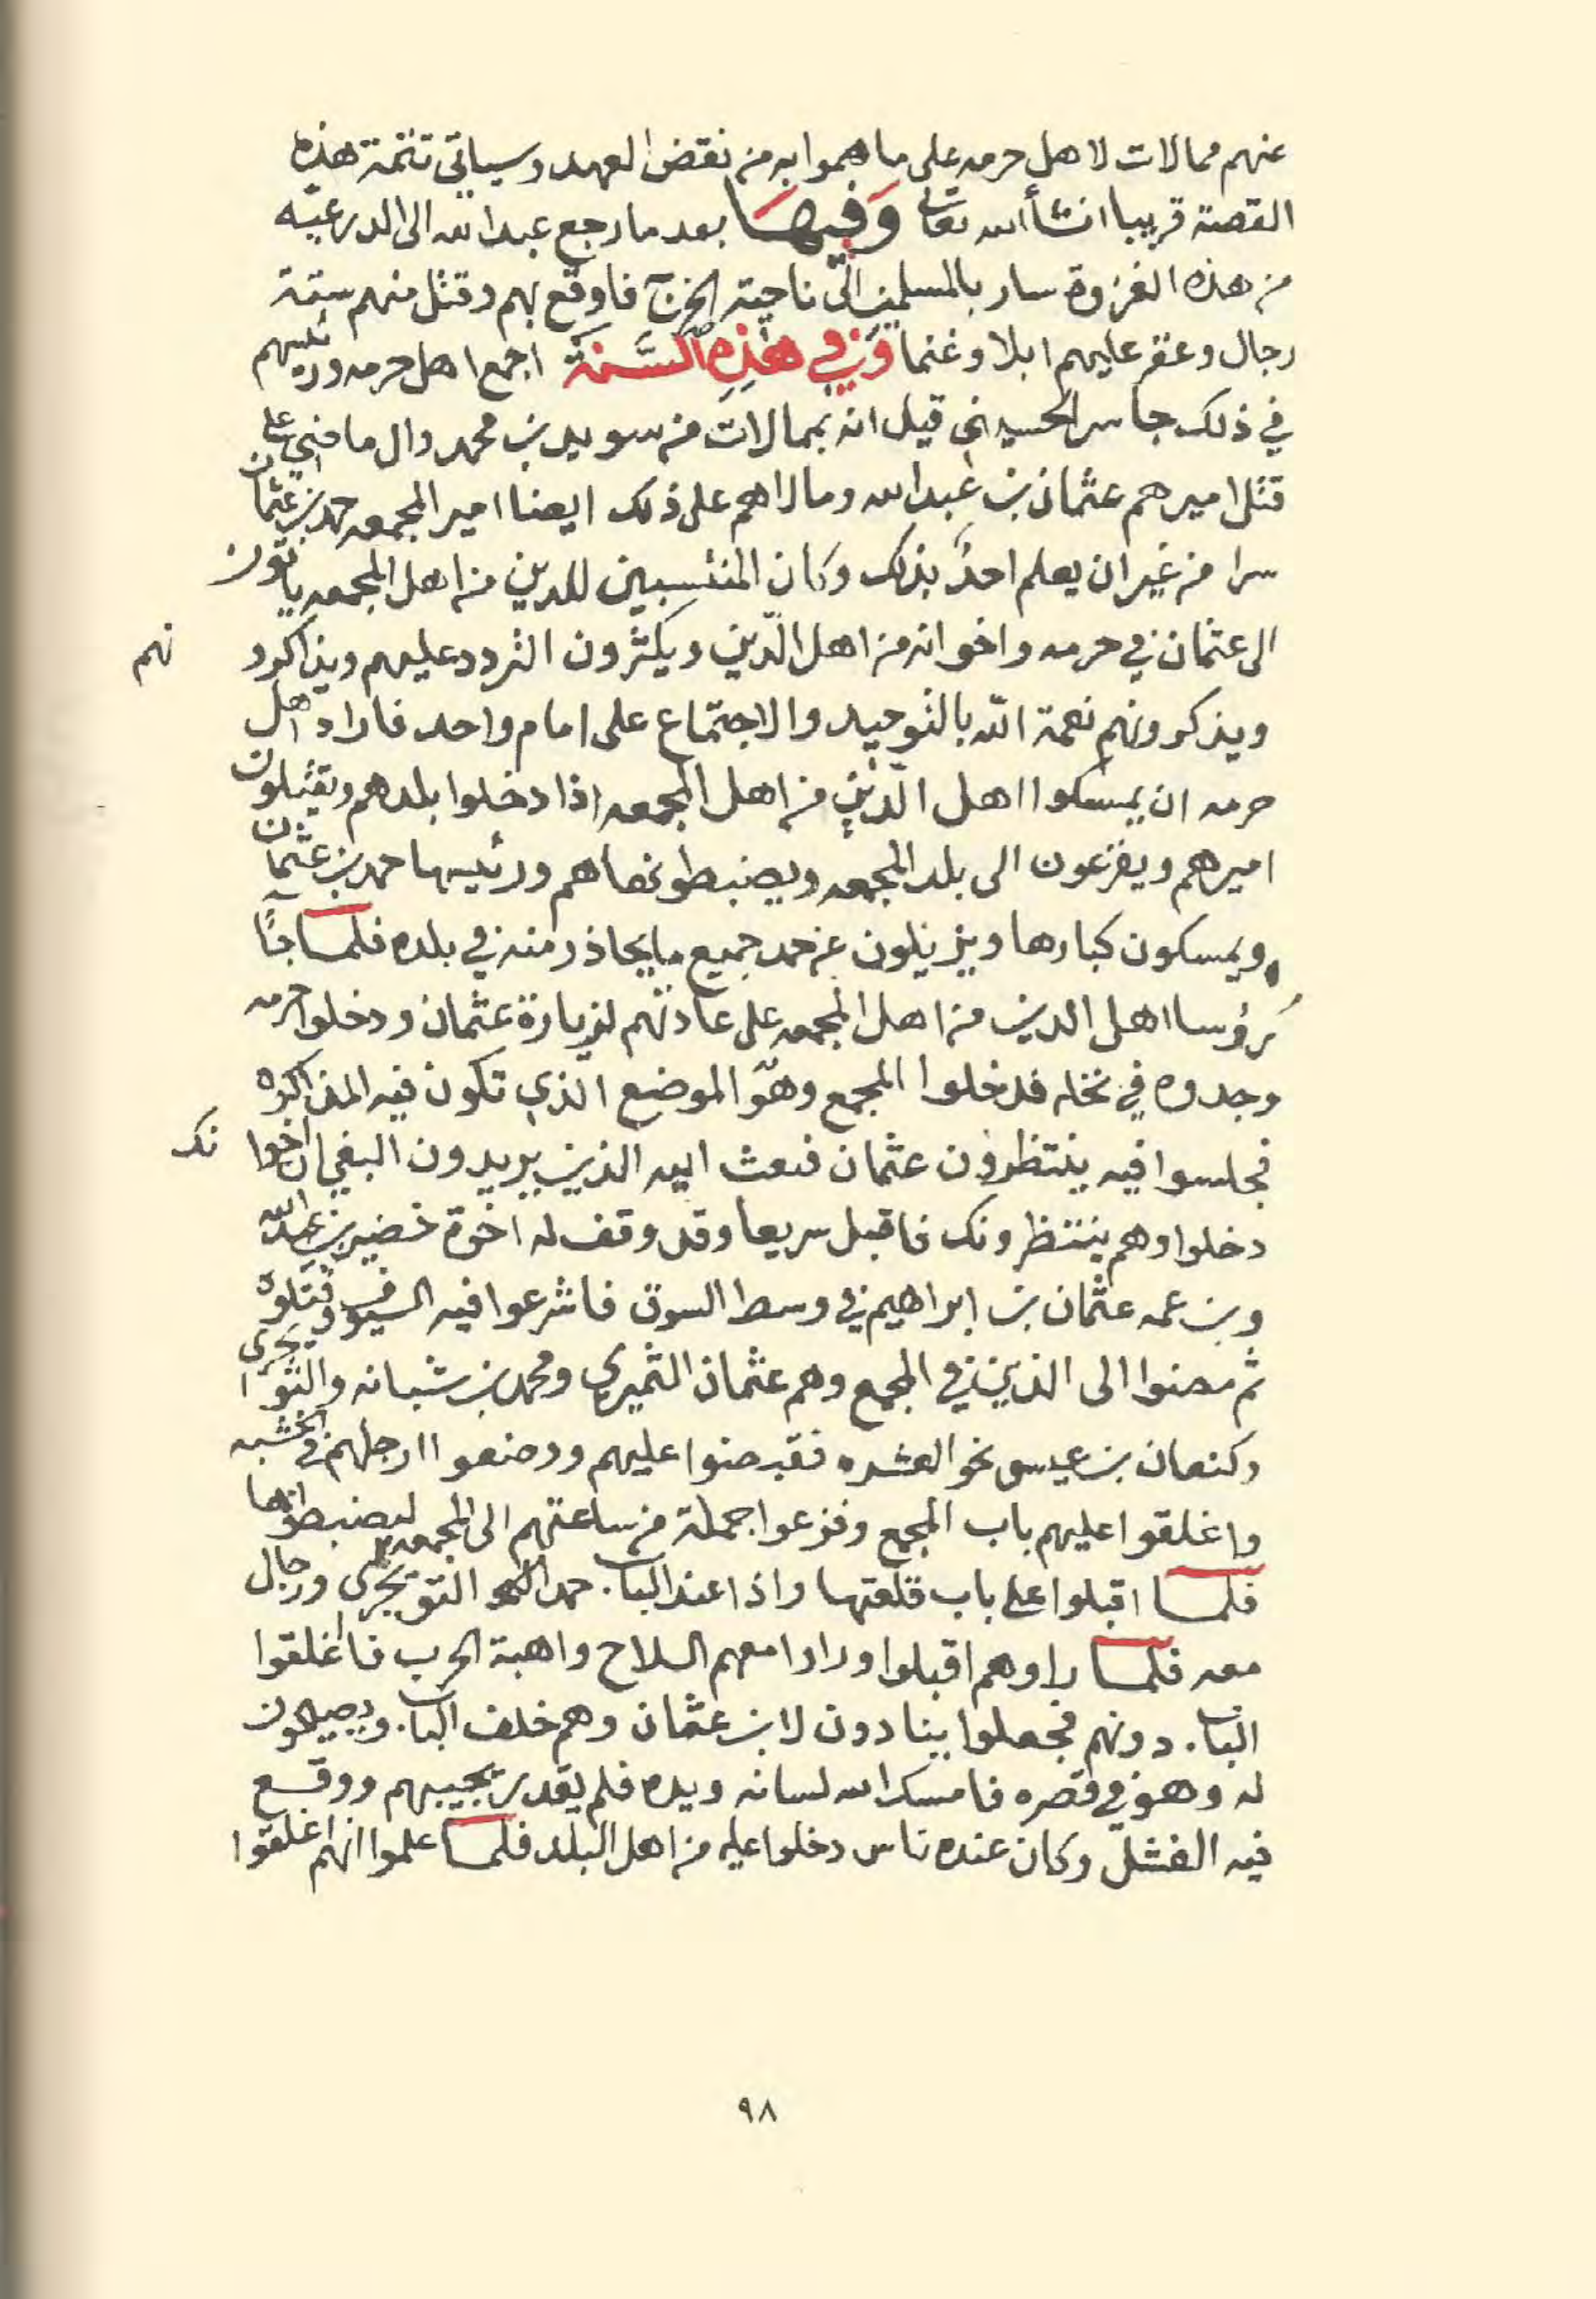 عنهم ممالات لاهل حرمه على ما هموا به من نقض العهد وسياتي تتمة هذه
القصة قريبا انشأ الله تعالى وَفيهَا بعد ما رجع عبدالله الى الدرعيّه
من هذه الغزوة سار بالمسلمين الى ناحية الخرج فاوقع بهم وقتل منهم ستة
رجال وعقر عليهم ابلا وغنما وَفي هَٰذِهِ السَّنَة اجمع اهل حرمه ورئيسهم
في ذلك جاسر الحسيني قيل انه بممالات من سويد بن محمد وال ماضي على
قتل اميرهم عثمان بن عبدالله ومالاهم على ذلك ايضا امير المجمعه حمد بن عثمان
سرا من غير ان يعلم احدٌ بذلك وكان المنتسبين للدين من اهل المجمعه ياتون
الى عثمان في حرمه واخوانه من اهل الدّين ويكثرون التردد عليهم ويذاكرو نهم
ويذكرونهم نعمة الله بالتوحيد والاجتماع على امام واحد فاراد اهل
حرمه ان يمسكوا اهل الدّين من اهل المجمعه اذا دخلوا بلدهم ويقتلون
اميرهم ويفزعون الى بلد المجمعه ويضبطونهاهم ورئيسها حمد بن عثمان
ويمسكون كبارها ويزيلون عن حمد جميع ما يحاذر منه في بلده فلمسا جآ
رُؤسا اهل الدين من اهل المجمعه على عادتهم لزيارة عثمان ودخلوا حرمه
وجدوه في نخله فدخلوا المجمع وهو الموضع الذي تكون فيه المذاكره
فجلسوا فيه ينتظرون عثمان فبعث اليه الذين يريدون البغي ان اخوا نك
دخلوا وهم ينتظرونك فاقبل سريعا وقد وقف له اخوة خضير بن عبدالله
وبن عمه عثمان بن ابراهيم في وسط السوق فاشرعوا فيه السيوف وقتلوه
ثم مضوا الى الذين في المجمع وهم عثمان الثميري ومحمد بن شبانه والتويجري
وكنعان بن عيسى نحو العشره فقبضوا عليهم ووضعوا ارجلهم في الخشبه
واغلقوا عليهم باب المجمع وفزعوا جملة من ساعتهم الى المجمعه ليضبطونها
فلمسا اقبلوا على باب قلعتها واذا عند الباب حمد التويجري ورجال
معه فلمسا راوهم اقبلوا وراوا معهم السلاح واهبة الحرب فا اغلقوا
الباب دونهم فجعلوا ينادون لابن عثمان وهم خلف الباب ويصيحون
له وهو في قصره فامسك الله لسانه ويده فلم يقدر يجيبهم ووقع
فيه الفشل وكان عنده ناس دخلوا عليه من اهل البلد فلمسا علموا انهم اغلقوا
٩٨